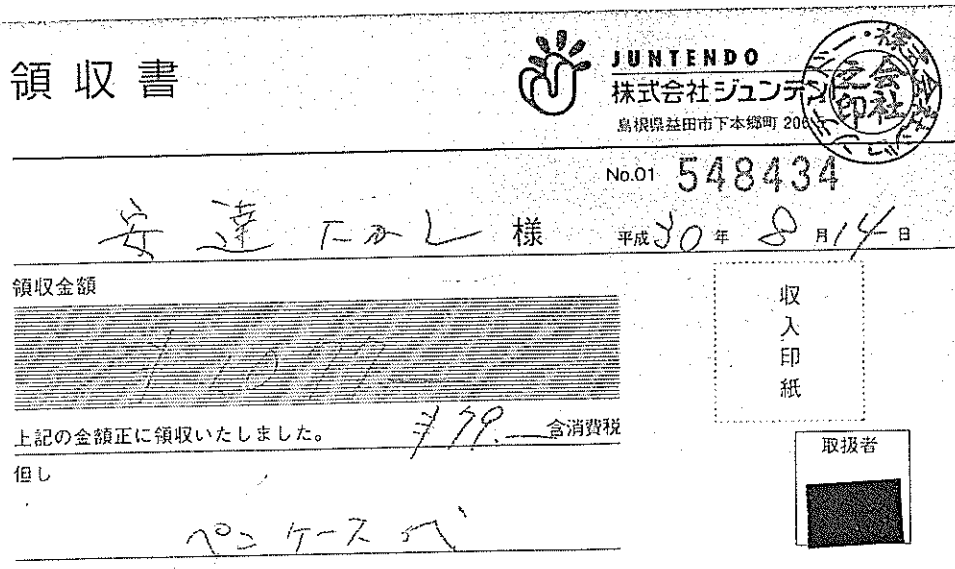 領収書
JUNTENDO
株式会社ジュンテンドー
島根県益田市下本郷町 206-5
株式会社ジュンテンドー
会社之印
No.01 548434
安達 たかし 様
平成30年 8月14日
領収金額
収入印紙
上記の金額正に領収いたしました。
¥79.— 含消費税
取扱者
但し
ペンケース